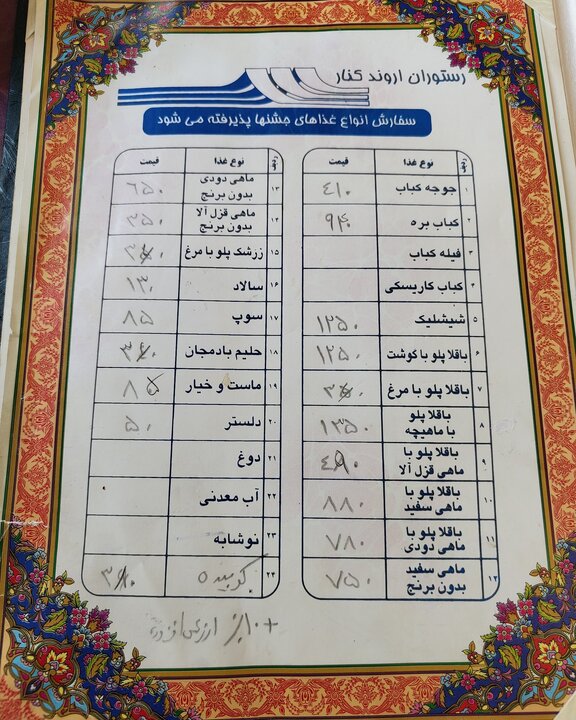 رستوران اروند کنار
سفارش انواع غذاهای جشنها پذیرفته می شود
ردیف نوع غذا قیمت
۱ جوجه کباب ۴۱۰
۲ کباب بره
۳ فیله کباب
۴ کباب کاریسکی
۵ شیشلیک ۱۲۵۰
۶ باقلا پلو با گوشت ۱۲۵۰
۷ باقلا پلو با مرغ
۸ باقلا پلو
با ماهیچه ۱۳۵۰
۹ باقلا پلو با
ماهی قزل آلا
۱۰ باقلا پلو با
ماهی سفید ۸۸۰
۱۱ باقلا پلو با
ماهی دودی ۷۸۰
۱۲ ماهی سفید
بدون برنج ۷۵۰
ردیف نوع غذا قیمت
۱۳ ماهی دودی
بدون برنج ۶۵۰
۱۴ ماهی قزل آلا
بدون برنج ۳۵۰
۱۵ زرشک پلو با مرغ
۱۶ سالاد ۱۳۰
۱۷ سوپ ۸۵
۱۸ حلیم بادمجان
۱۹ ماست و خیار
۲۰ دلستر ۵۰
۲۱ دوغ
۲۲ آب معدنی
۲۳ نوشابه
۲۴ کوبیده
+۱۰٪ ارزش افزوده